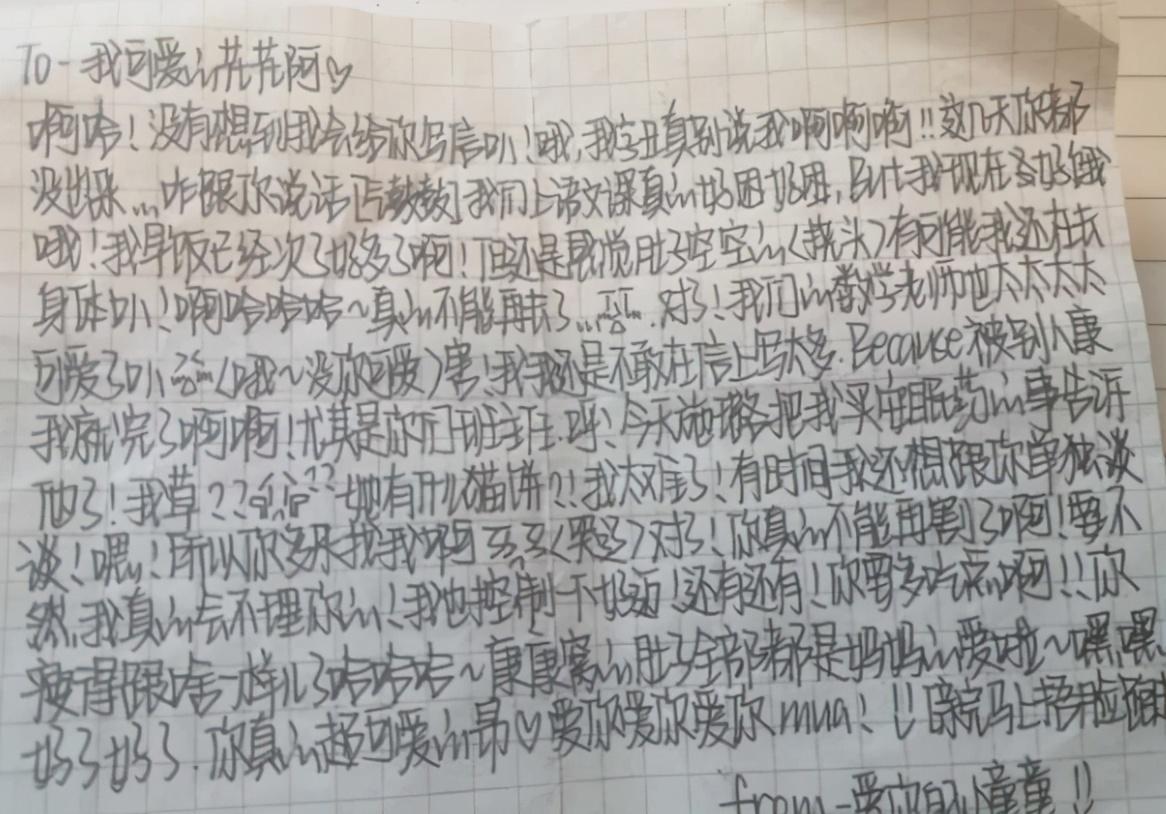 To-我可爱的花花阿♡
啊哈！没有想到我会给你写信叭！哦，我字丑真别说我啊啊啊!!这几天你都
没出来...咋跟你说话[气鼓鼓]我们上语文课真的好困好困，But我现在多好饿
哦！我早饭已经次了好多了啊！但还是感觉肚子空空的(挠头)有可能我还在长
身体叭！啊哈哈哈~真的不能再长了... 对了！我们的数学老师也太太太太
可爱了叭(哦~没你可爱)害！我还是不敢在信上写太多.Because被别人康
我就完了啊啊！尤其是你们班主任.呼！今天她咯把我买安眠药的事告诉
他了！我草??她有什么猫饼?!我太难了！有时间我还想跟你单独谈
谈！嗯！所以你多来找我啊(哭了)对了！你真的不能再割了啊！要不
然,我真的会不理你的！我也控制一下好趴！还有还有！你要多吃点啊!!你
瘦得跟啥一样儿了哈哈哈~康康窝的肚子全部都是妈妈的爱啦~嘿嘿
好了好了.你真的超可爱的昂♡爱你爱你爱你mua！!!
from-爱你的小童童!!